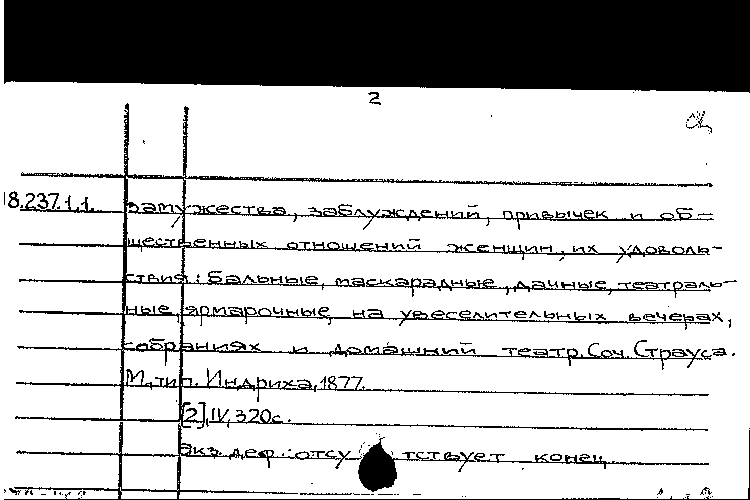 2
18.237.1.1. замужества, заблуждений, привычек и об=
щественных отношений женщин, их удоволь-
ствия: бальные, маскарадные, дачные, театраль-
ные, ярмарочные, на увеселительных вечерах,
собраниях и домашний театр. Соч. Страуса.
М., тип. Индриха, 1877.
[2], IV, 320с.
Экз. деф.: отсутствует конец